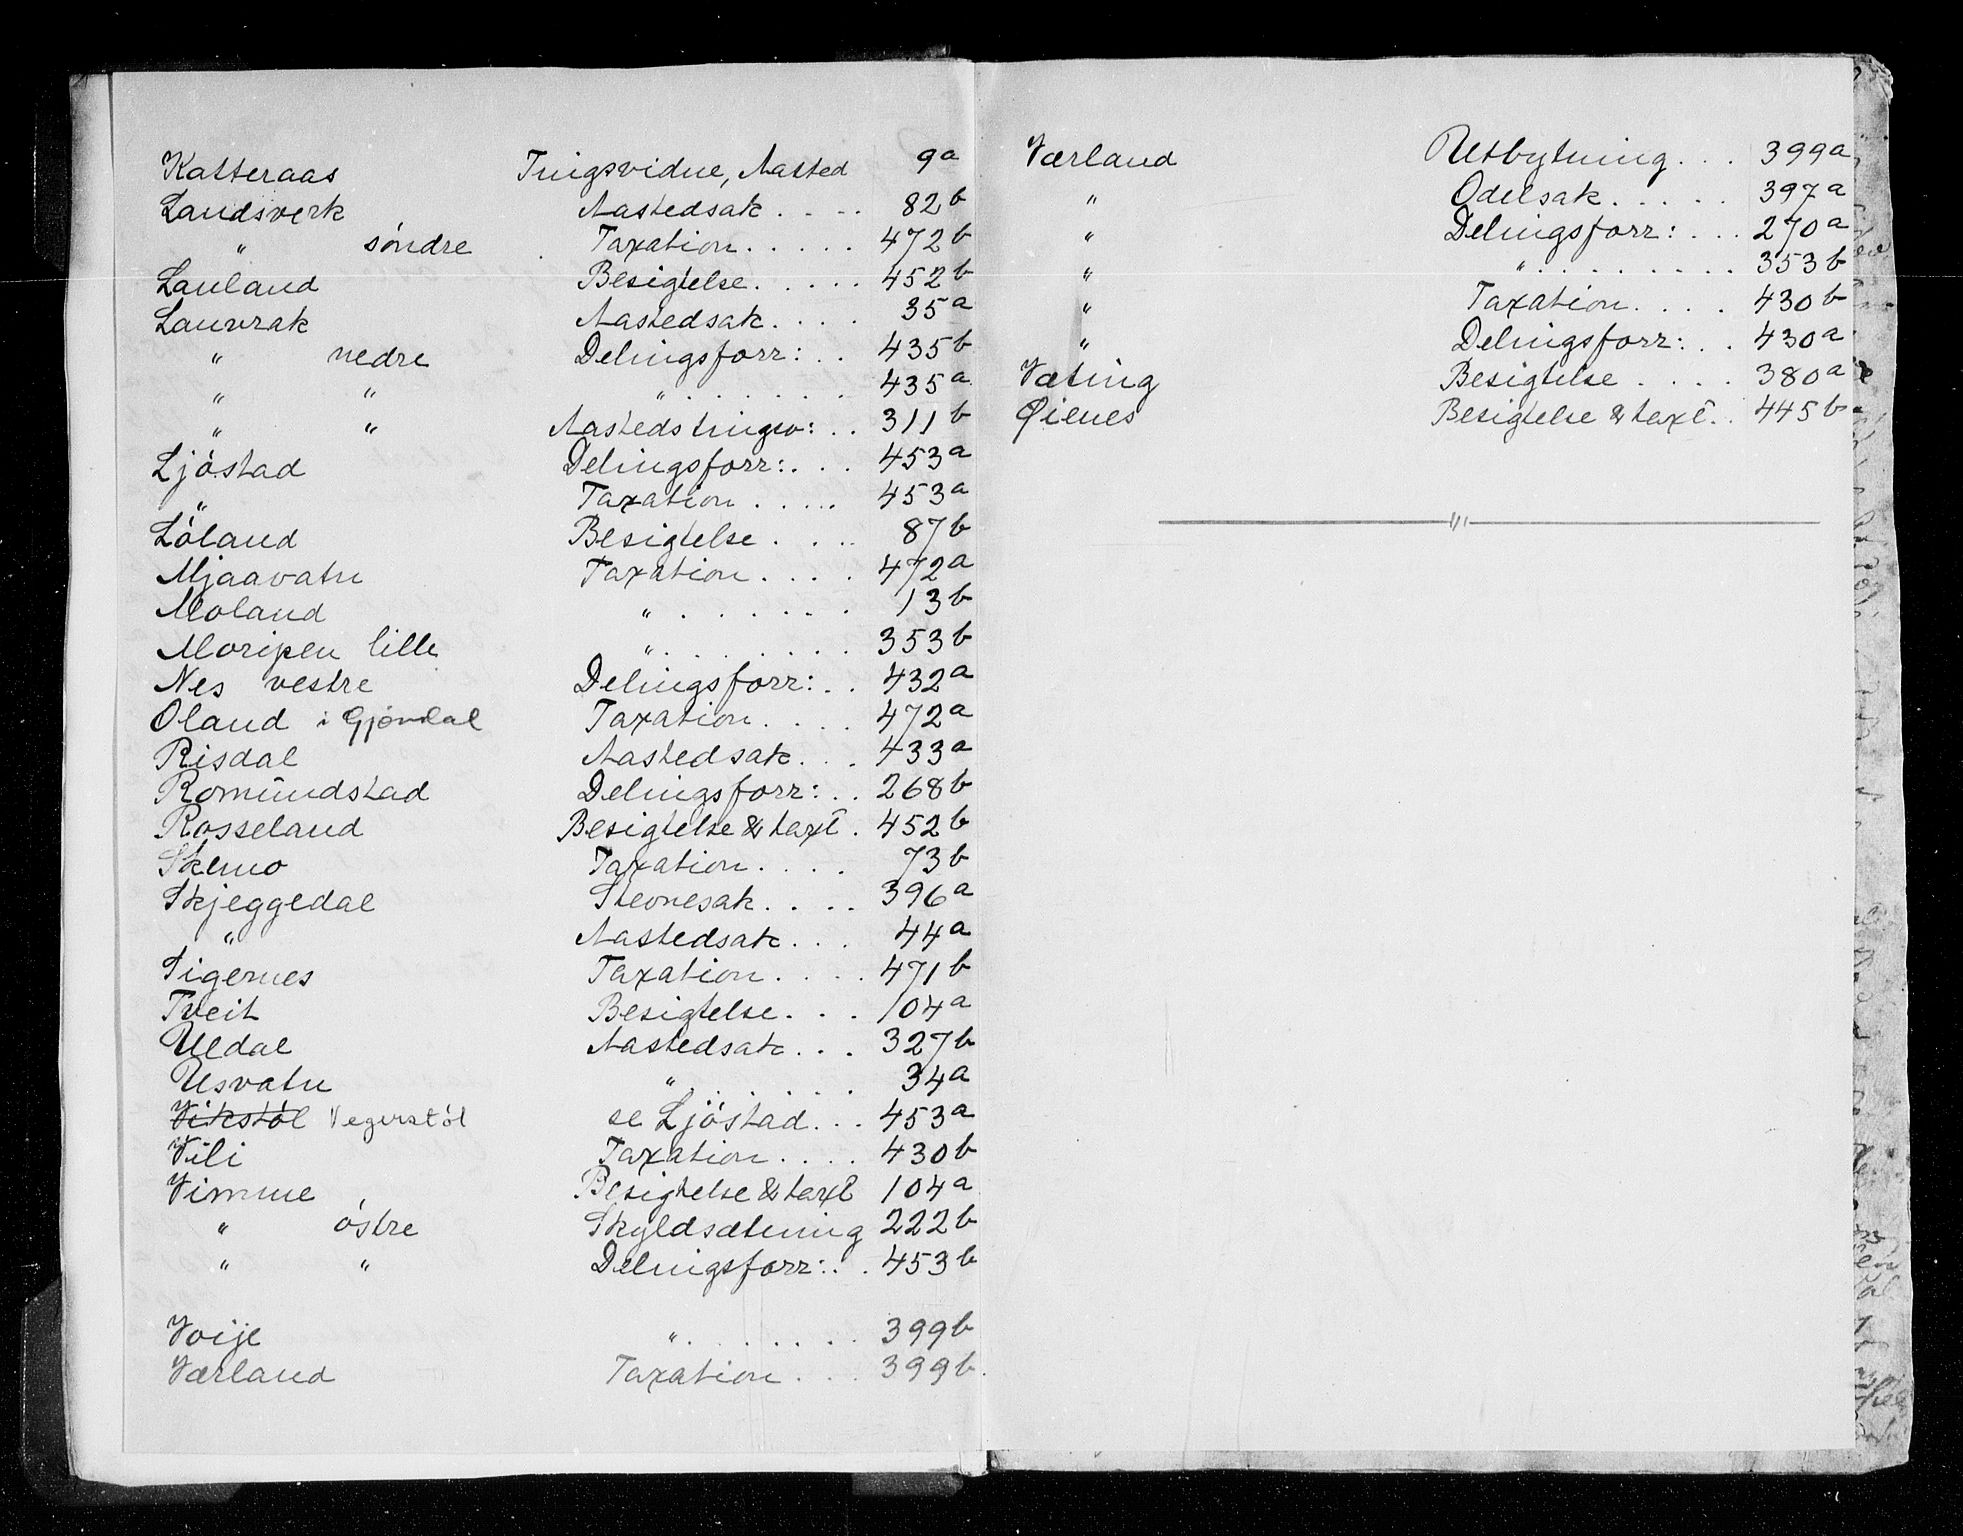 Katteraas Tingsvidne, Aasted 9a
Landsverk Aastedsak .... 82b
" söndre Taxation ..... 472b
Lauland Besigtelse ..... 452b
Lauvrak Aastedsak .... 35a
" nedre Delingsforr: .. 435b
" " " ....... 435a
" " Aastedstingsv: .. 311b
Ljóstad Delingsforr: ... 453a
" Taxation ..... 453a
Lóland Besigtelse .... 87b
Mjaavatn Taxation .... 472a
Moland " ...... 13b
Moripen lille " ....... 353b
Nes vestre Delingsforr: .. 432a
Oland i Gjóvdal Taxation .... 472a
Risdal Aastedsak ... 433a
Romundstad Delingsforr: .. 268b
Rosseland Besigtelse & taxt . 452b
Skemo Taxation .... 73b
Skjeggedal Stevnesak .... 396a
" Aastedsak ... 44a
Sigernes Taxation .... 471b
Tveit Besigtelse ... 104a
Uldal Aastedsak ... 327b
Usvatn " ...... 34a
Vikstöl Vegerstól se Ljóstad ... 453a
Vili Taxation .... 430b
Vimme Besigtelse & taxt 104a
" östre Skyldsætning 222b
" " Delingsforr: .. 453b
Voije " ...... 399b
Værland Taxation ... 399b.
Værland Utbytning ... 399a
" Odelsak ..... 397a
" Delingsforr: ... 270a
" " ......... 353b
" Taxation .... 430b
" Delingsforr: .. 430a
Væting Besigtelse .... 380a
Øienes Besigtelse & taxt .. 445b